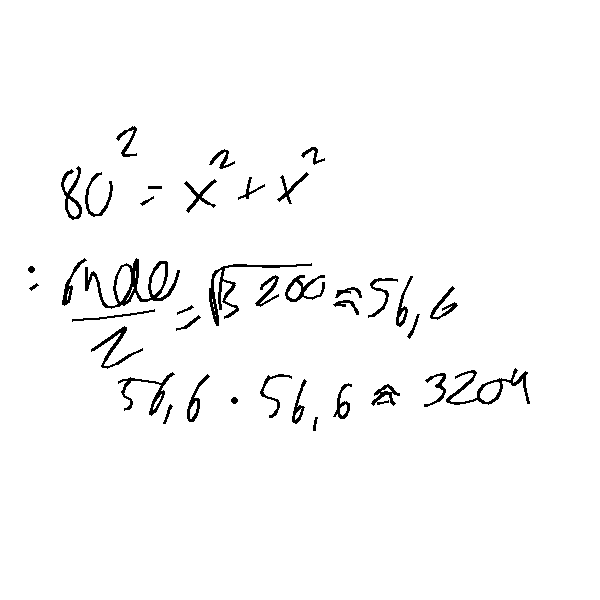 80² = x² + x²
: 6400/2 = √3200 ≈ 56,6
56,6 · 56,6 ≈ 3204